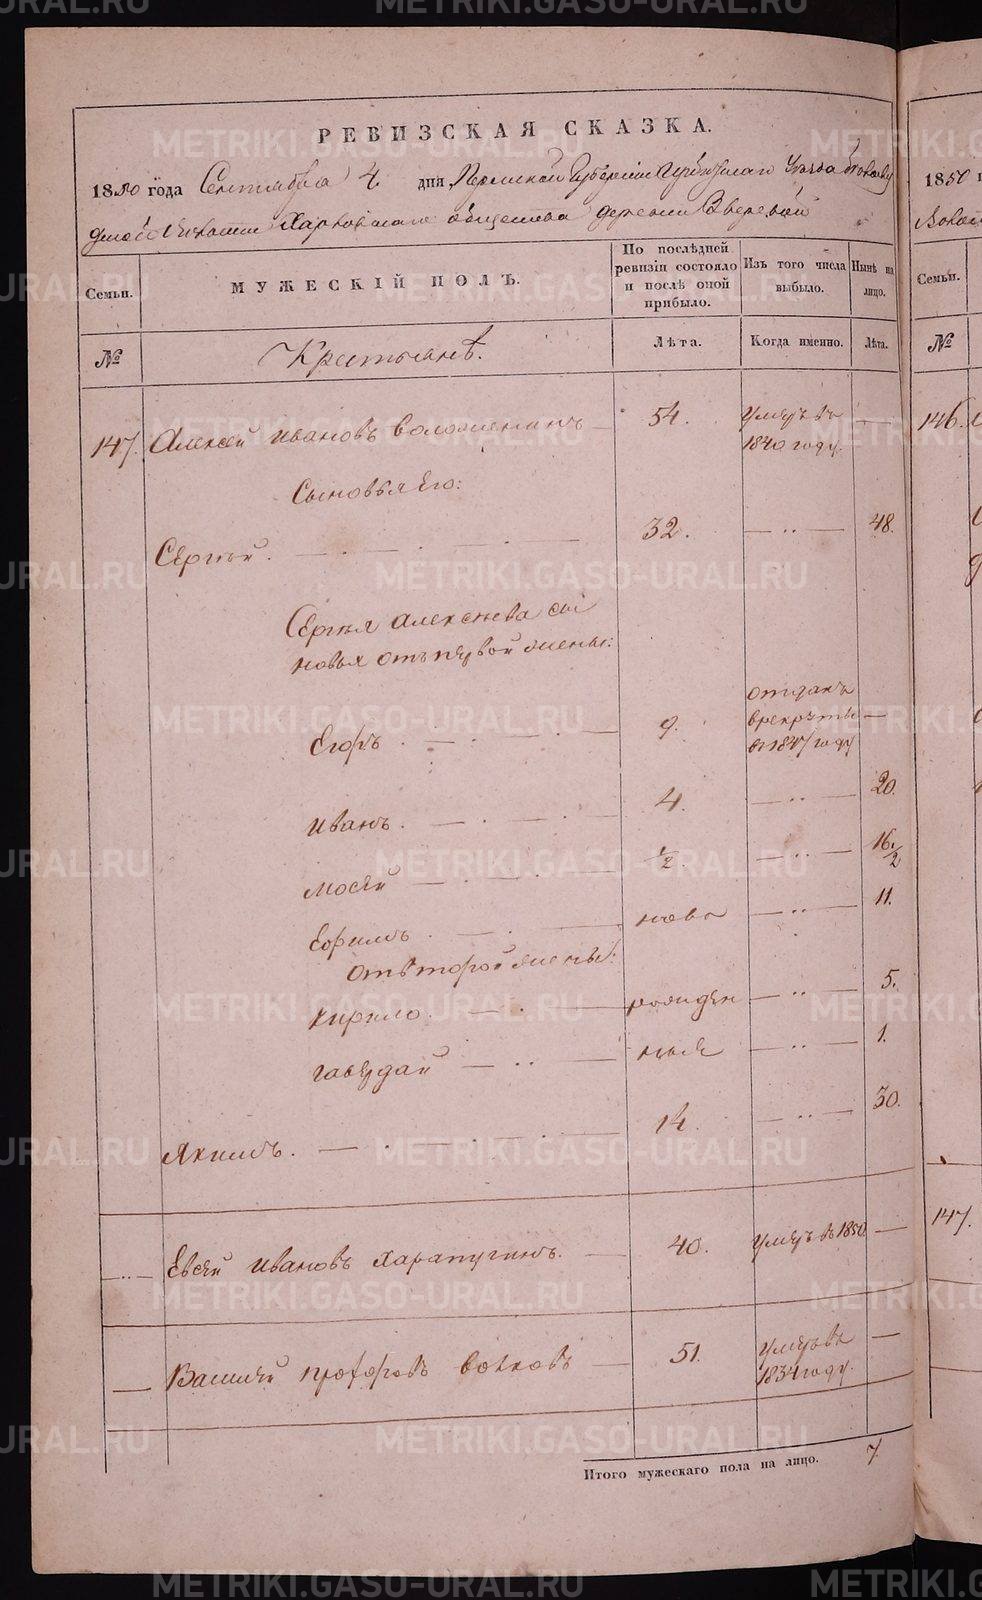 METRIKI.GASO-URAL.RU
РЕВИЗСКАЯ СКАЗКА.
1850 года Сентября 4. дня Пермской Губернии Ирбитскаго Уѣзда
волости Харловскаго общества деревни Зверевой
Семьи.
МУЖЕСКІЙ ПОЛЪ.
По послѣдней ревизіи состояло и послѣ оной прибыло.
Изъ того числа выбыло.
Нынѣ на лицо.
№
Крестьянѣ.
Лѣта.
Когда именно.
Лѣта.
147. Алексей Ивановъ 54. умеръ въ 1840 году. —
Сыновья Его:
Сергѣй. 32. — 48.
Сергѣя Алексѣева сы
новья отъ первой жены:
Егоръ. 9. отданъ в рекруты в 1847 году —
Иванъ. 4. — 20.
Мосей ½. — 16.½
Ефимъ. ново — 11.
Отъ второй жены:
Кирило. рожден — 5.
ные — 1.
Якимъ. 14. — 30.
Евсей Ивановъ Харапугинъ. 40. умеръ в 1850 —
Василей Прохоровъ Волковъ 51. умеръ въ 1834 году. —
Итого мужескаго пола на лицо. 7.
1850
Семьи.
№
146.
147.